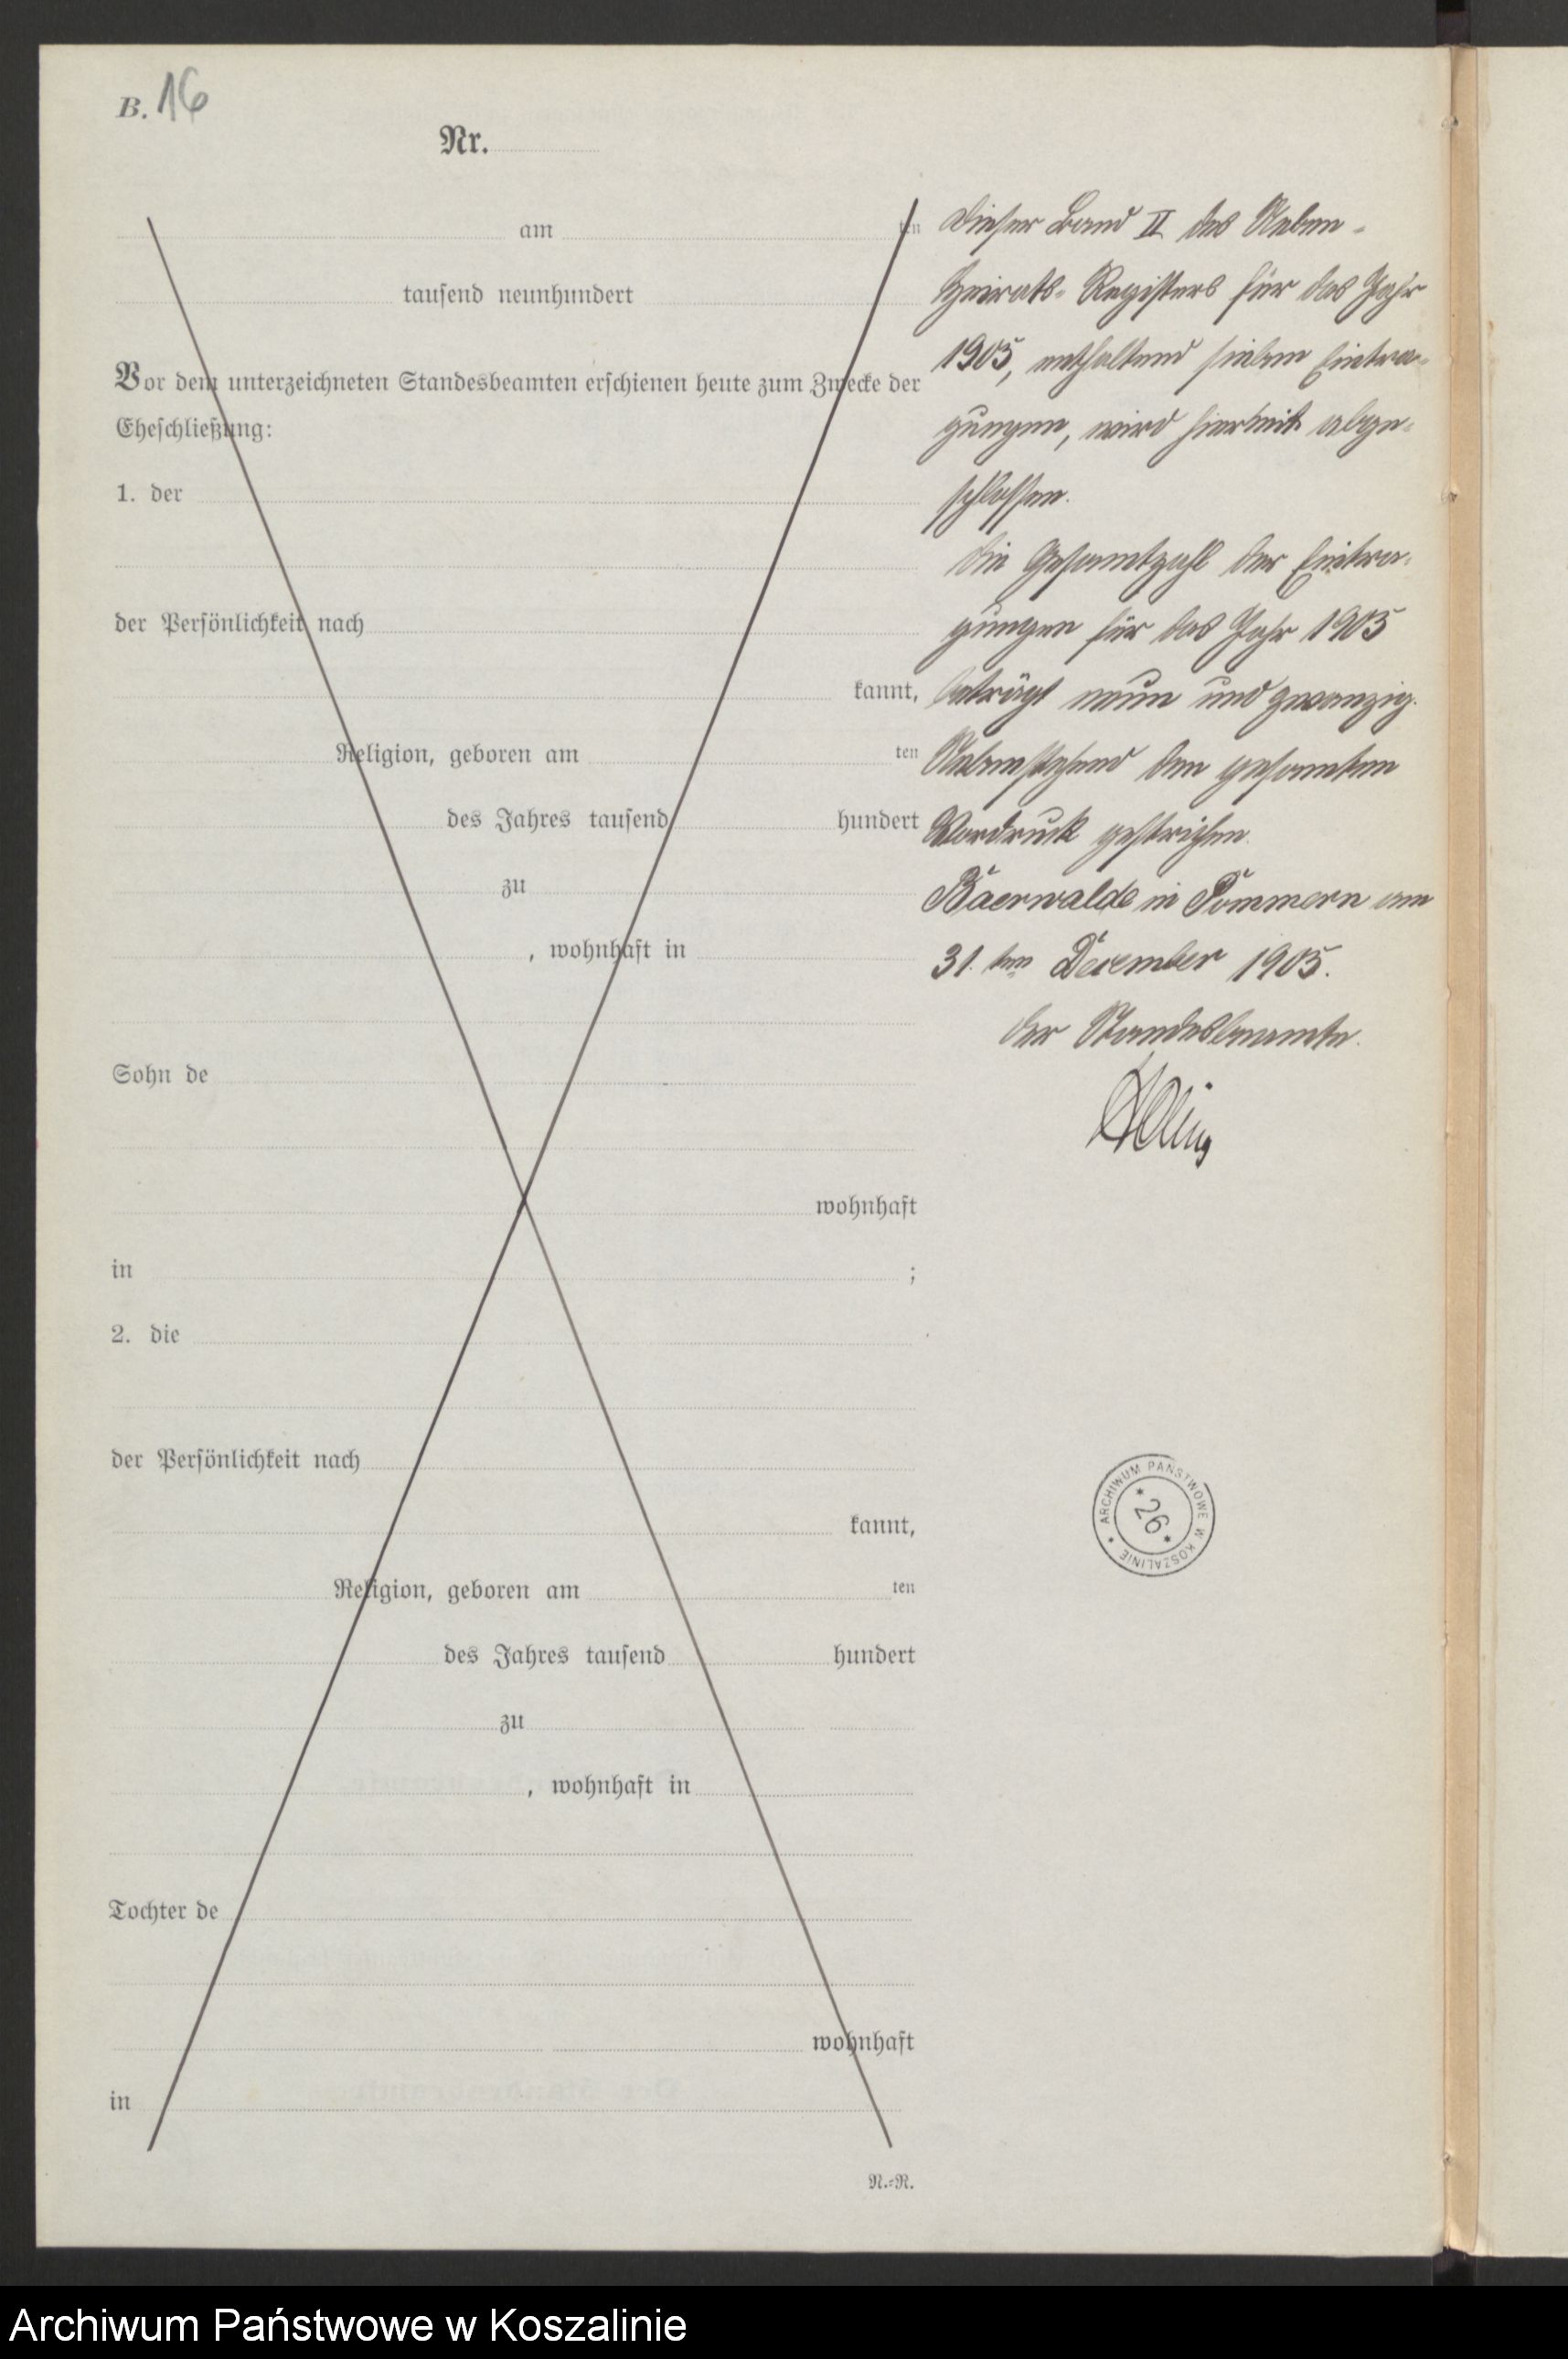 B. 16
Nr.
am ten
tausend neunhundert
Vor dem unterzeichneten Standesbeamten erschienen heute zum Zwecke der
Eheschließung:
1. der
der Persönlichkeit nach
kannt,
Religion, geboren am ten
des Jahres tausend hundert
zu
, wohnhaft in
Sohn de
wohnhaft
in ;
2. die
der Persönlichkeit nach
kannt,
Religion, geboren am ten
des Jahres tausend hundert
zu
, wohnhaft in
Tochter de
wohnhaft
in
N.=R.
Dieser Band II des Neben-
Heirats-Registers für das Jahr
1905, enthaltend sieben Eintra-
gungen, wird hiermit abge-
schlossen.
Die Gesamtzahl der Eintra-
gungen für das Jahr 1905
beträgt neun und zwanzig.
Nebenstehend den gesamten
Vordruck gestrichen.
Baerwalde in Pommern am
31. ten December 1905.
Der Standesbeamte.
ARCHIWUM PAŃSTWOWE W KOSZALINIE
* 26 *
Archiwum Państwowe w Koszalinie